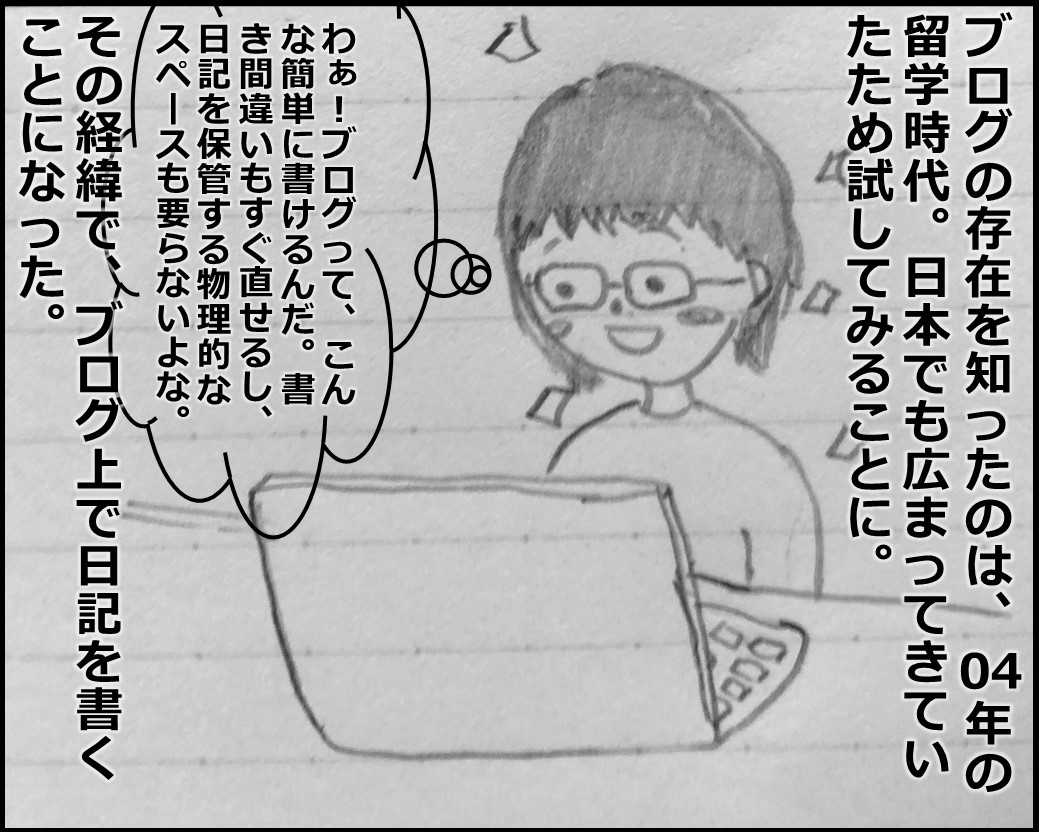 ブログの存在を知ったのは、04年の
留学時代。日本でも広まってきてい
たため試してみることに。
わぁ！ブログって、こん
な簡単に書けるんだ。書
き間違いもすぐ直せるし、
日記を保管する物理的な
スペースも要らないよな。
その経緯で、ブログ上で日記を書く
ことになった。